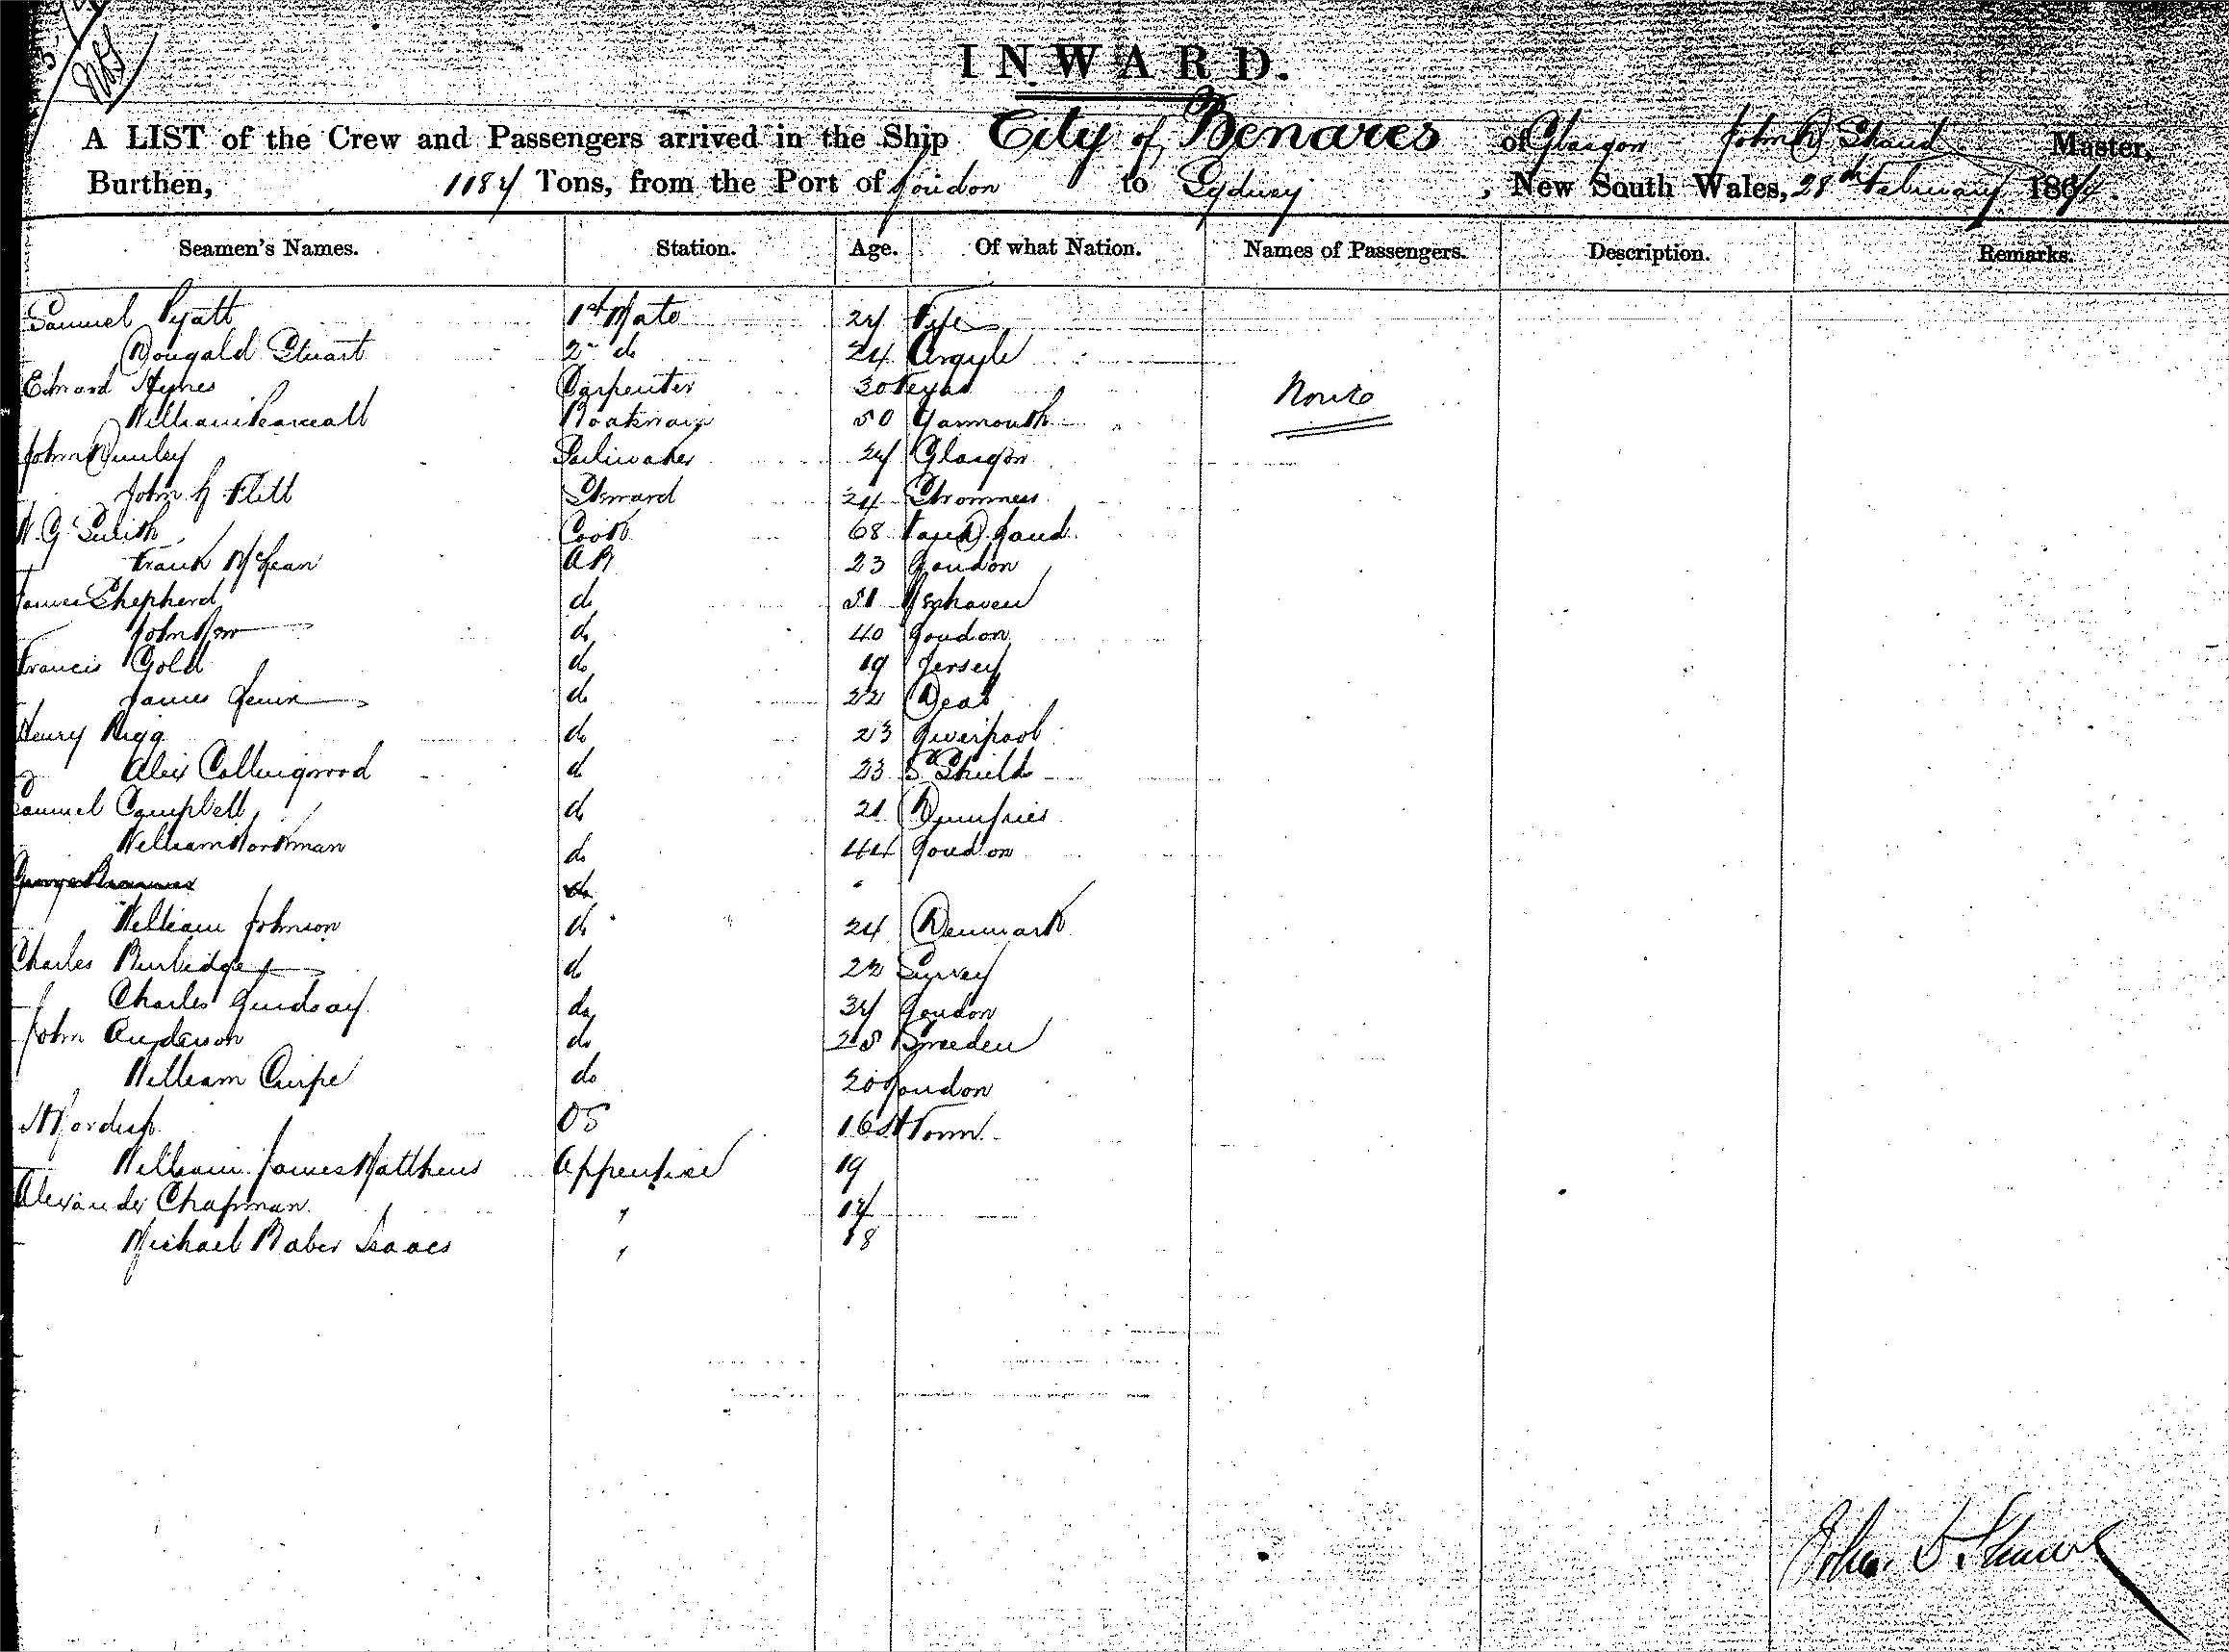 INWARD.
A LIST of the Crew and Passengers arrived in the Ship City of Benares of Glasgow John D Shand Master,
Burthen, 1184 Tons, from the Port of London to Sydney, New South Wales, 28th February 1864.
Seamen's Names. Station. Age. Of what Nation. Names of Passengers. Description. Remarks.
Samuel Pyatt 1st Mate 24 Fife
Dougald Stuart 2nd do 24 Argyle
Edward Hynes Carpenter 30 Texas None
William Boatswain 50 Yarmouth
John Sailmaker 24 Glasgow
John G Flett Steward 24 Stromness
W. G. Smith Cook 68 Van D Land
Frank McLean AB 23 London
James Shepherd do 51
John do 40 London
Francis Gold do 19 Jersey
James do 22 Deal
Henry Rigg do 23 Liverpool
Alex Collingwood do 23 S Shields
Samuel Campbell do 21 Dumfries
William Workman do 44 London
George do
William Johnson do 24 Denmark
Charles Burbidge do 22 Surrey
Charles Lindsay do 34 London
John Anderson do 28 Sweden
William do 20 London
OS 16
William James Matthews Apprentice 19
Alexander Chapman " 17
Michael Baber Isaacs " 18
John D Shand